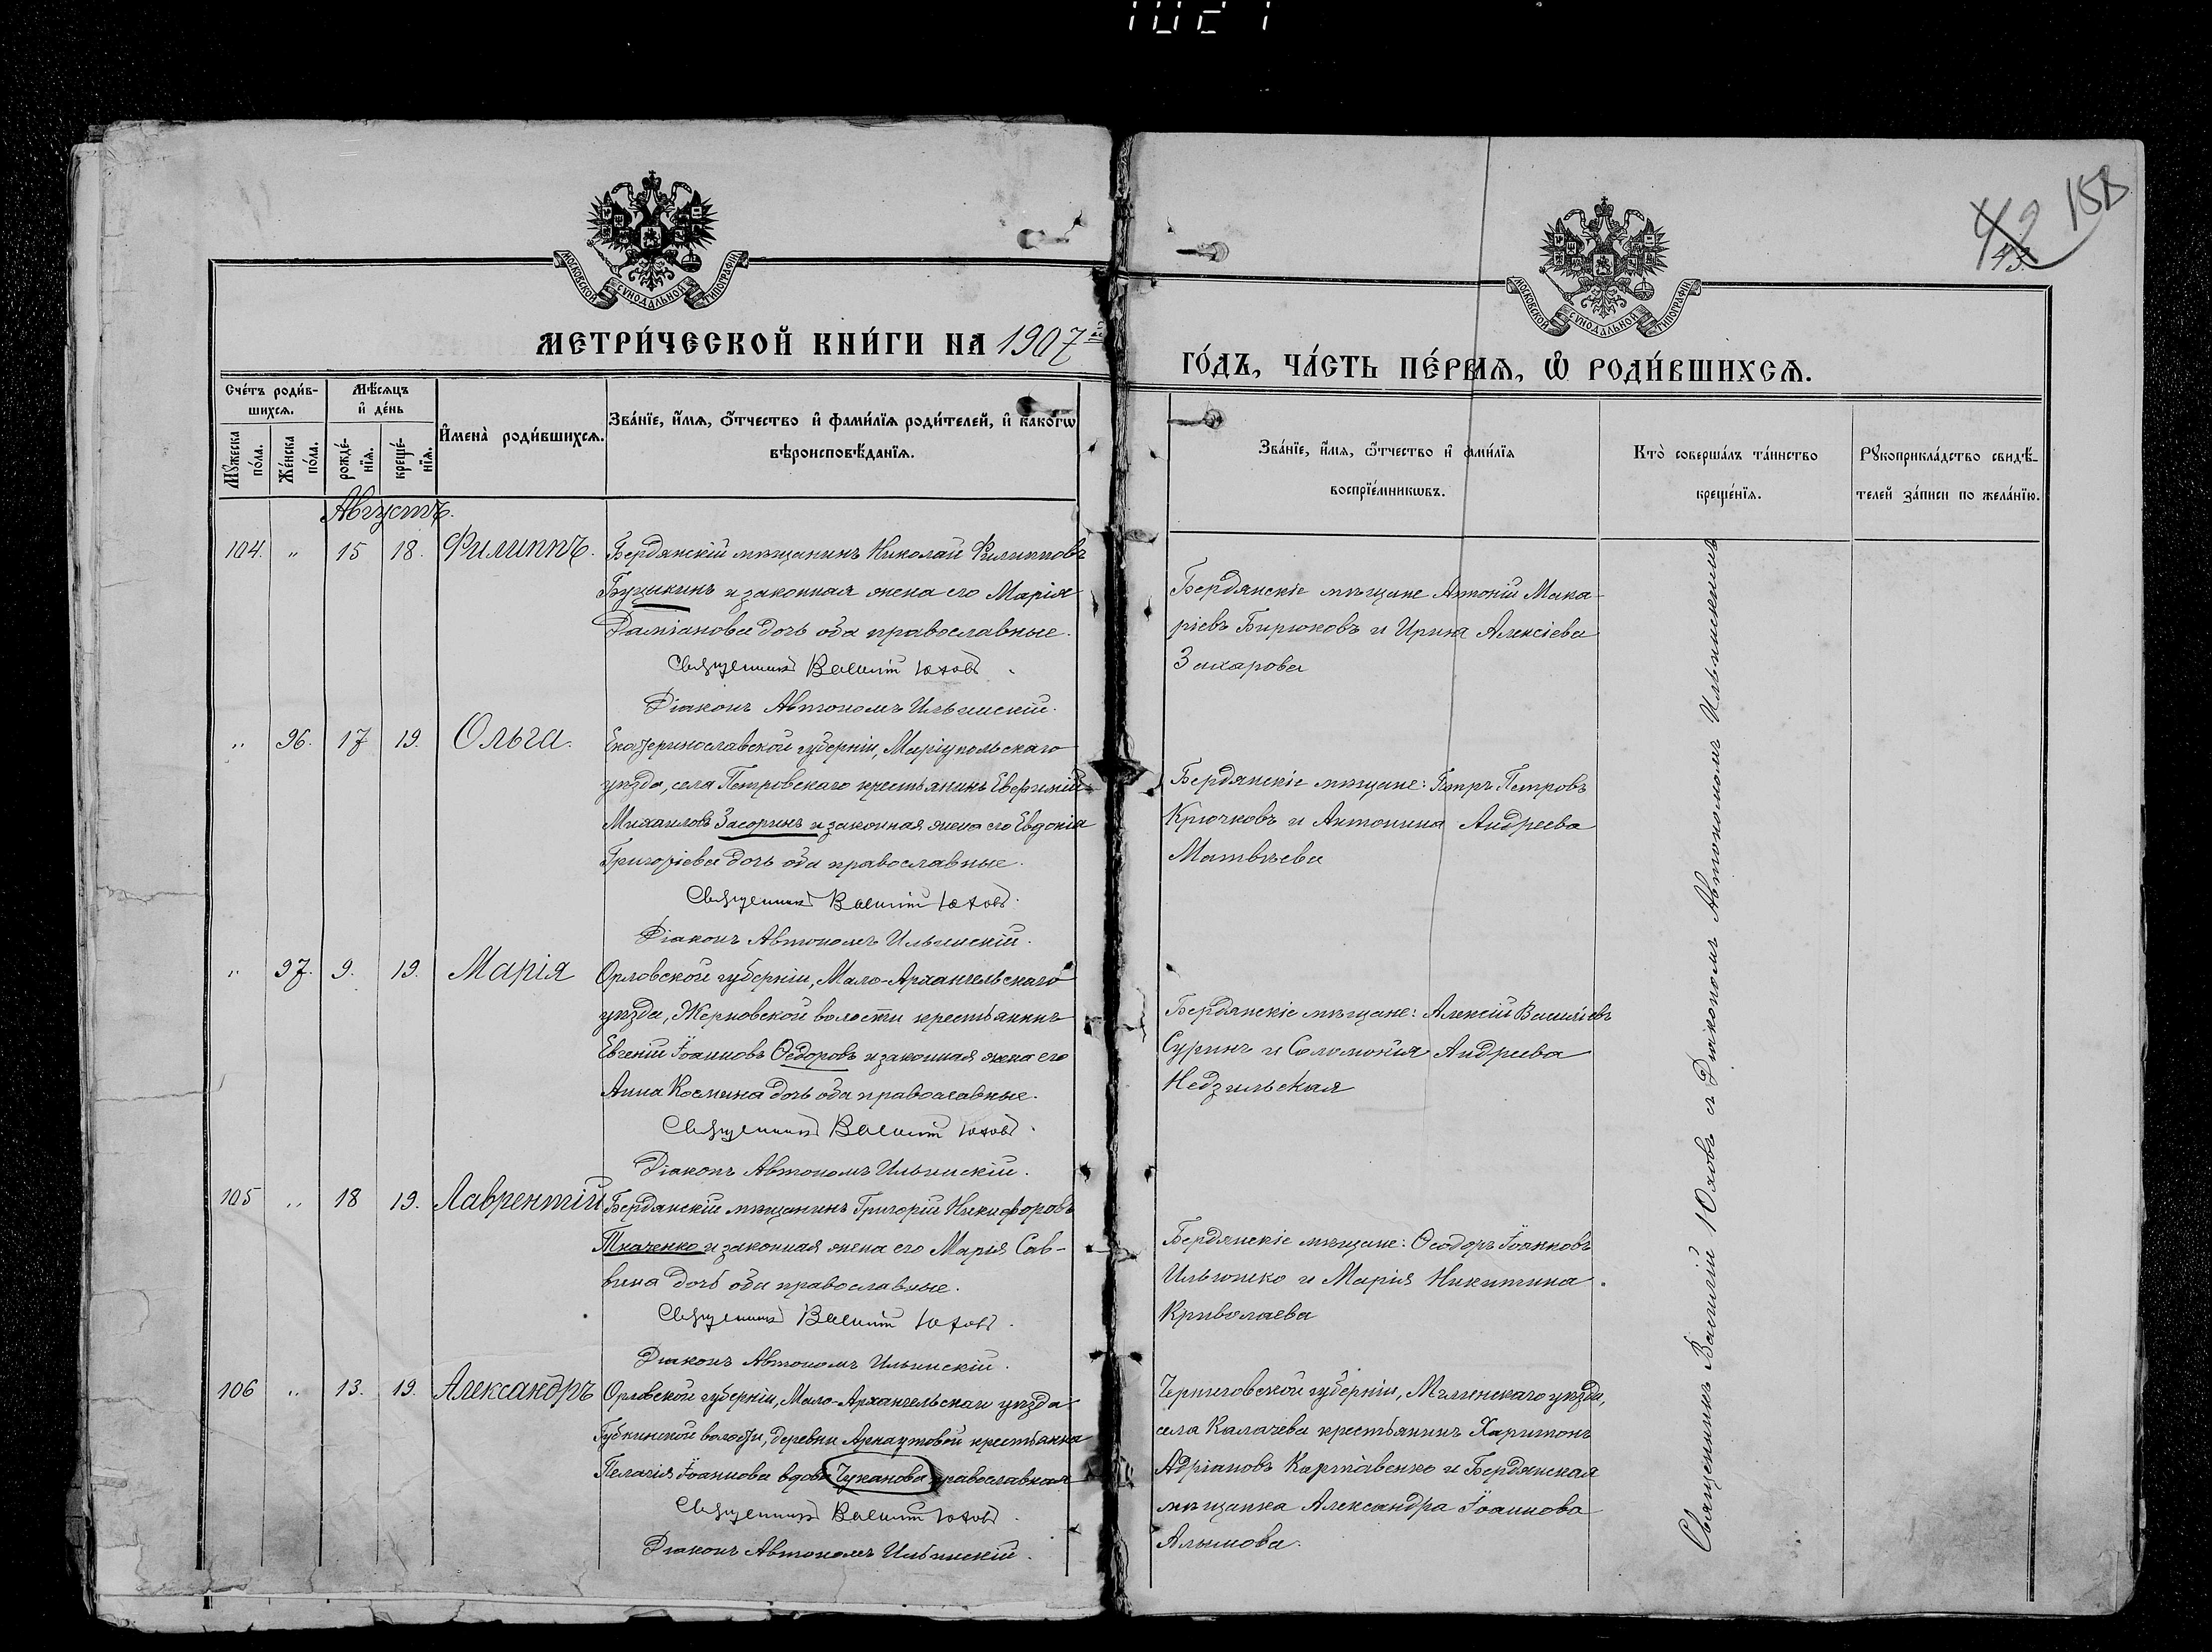 1021
42
45
158
МОСКОВСКОЙ СѴНОДАЛЬНОЙ ТИПОГРАФІИ
МОСКОВСКОЙ СѴНОДАЛЬНОЙ ТИПОГРАФІИ
МЕТРИ́ЧЕСКОЙ КНИ́ГИ НА 1907й
ГО́ДЪ, ЧА́СТЬ ПЕ́РВАѦ, Ѡ҆ РОДИ́ВШИХСѦ.
Сче́тъ роди́в-
шихсѧ.
Мꙋ́жеска по́ла.
Же́нска по́ла.
Мѣ́сѧцъ и҆ де́нь
рожде́-нїѧ.
креще́-нїѧ.
И҆мена̀ роди́вшихсѧ.
Зва́нїе, и҆́мѧ, ѻ҆́тчество и҆ фами́лїѧ роди́телей, и҆ како́гѡ
вѣроисповѣ́данїѧ.
Зва́нїе, и҆́мѧ, ѻ҆́тчество и҆ фами́лїѧ
воспрїе́мникѡвъ.
Кто̀ соверша́лъ та́инство
креще́нїѧ.
Рꙋкоприкла́дство свидѣ́-
телей за́писи по жела́нїю.
Августъ.
104. „ 15 18. Филиппъ. Бердянскій мѣщанинъ Николай Филипповъ
Буцыкинъ и законная жена его Марія
Даміанова дочь оба православные.
Священникъ Василій Юховъ.
Діаконъ Автономъ Ильинскій.
Бердянскіе мѣщане Антоній Мака-
ріевъ Бирюковъ и Ирина Алексіева
Захарова
„ 96. 17 19. Ольга. Екатеринославской губерніи, Маріупольскаго
уѣзда, села Петровскаго крестьянинъ Евфимій
Михаиловъ Засоринъ и законная жена его Евдокія
Григоріева дочь оба православные.
Священникъ Василій Юховъ.
Діаконъ Автономъ Ильинскій.
Бердянскіе мѣщане: Петръ Петровъ
Крючковъ и Антонина Андреева
Матвѣева
„ 97. 9. 19. Марія Орловской губерніи, Мало-Архангельскаго
уѣзда, Жерновской волости крестьянинъ
Евгеній Іоанновъ Ѳедоровъ и законная жена его
Анна Космина дочь оба православные.
Священникъ Василій Юховъ.
Діаконъ Автономъ Ильинскій.
Бердянскіе мѣщане: Алексій Василіевъ
Суринъ и Соломонія Андреева
Недзильская
105 „ 18 19. Лаврентій Бердянскій мѣщанинъ Григорій Никифоровъ
Ткаченко и законная жена его Марія Сав-
вина дочь оба православные.
Священникъ Василій Юховъ.
Діаконъ Автономъ Ильинскій.
Бердянскіе мѣщане: Ѳеодоръ Іоанновъ
Ильюшко и Марія Никитина
Криволаева
106 „ 13. 19. Александръ Орловской губерніи, Мало-Архангельскаго уѣзда
Губкинской волости, деревни Арнаутовой крестьянка
Пелагія Іоаннова вдова Чуканова православная
Священникъ Василій Юховъ.
Діаконъ Автономъ Ильинскій.
Черниговской губерніи, Мглинскаго уѣзда,
села Калачева крестьянинъ Харитонъ
Адріановъ Картавенко и Бердянская
мѣщанка Александра Іоаннова
Алымова.
Священникъ Василій Юховъ съ Діакономъ Автономомъ Ильинскимъ